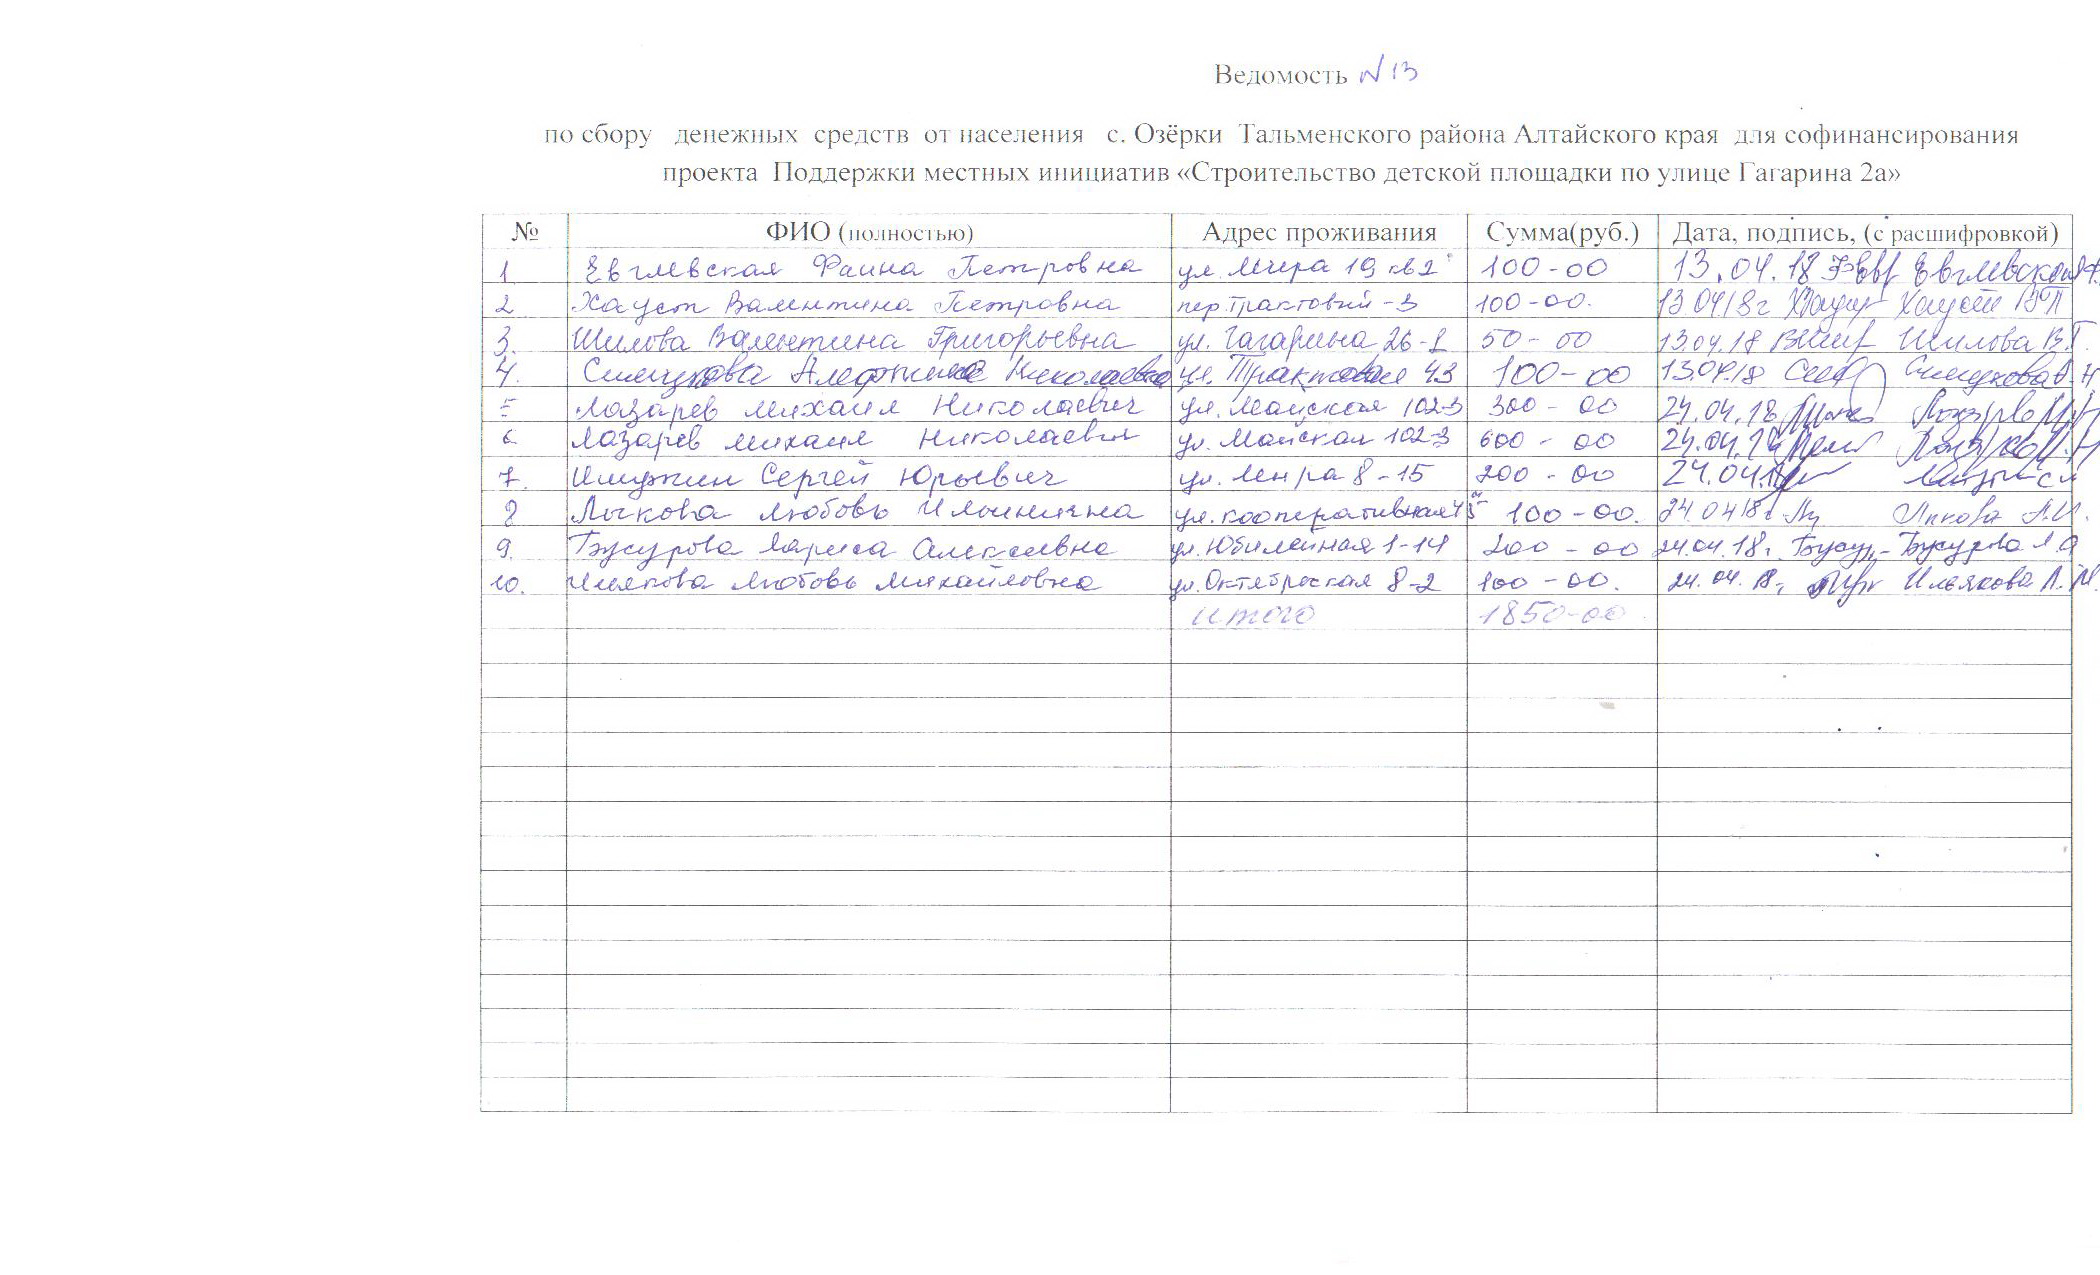 Ведомость N 13
по сбору денежных средств от населения с. Озёрки Тальменского района Алтайского края для софинансирования
проекта Поддержки местных инициатив «Строительство детской площадки по улице Гагарина 2а»
№ ФИО (полностью) Адрес проживания Сумма(руб.) Дата, подпись, (с расшифровкой)
1 Евглевская Фаина Петровна ул. Мира 19 кв 2 100-00 13.04.18 Евглевская
2 Хауст Валентина Петровна пер. Трактовый - 3 100-00. 13.04.18г Хауст В П
3. Шилова Валентина Григорьевна ул. Гагарина 26-1 50-00 13.04.18 Шилова В.Г.
4. Николаевна ул. 43 100-00 13.04.18
5 Лазарев Михаил Николаевич ул. Майская 102-3 300-00 24.04.18 Лазарев М.Н
6 Лазарев Михаил Николаевич ул. Майская 102-3 600-00 24.04.18 Лазарев М.Н
7. Сергей Юрьевич 8-15 200-00 24.04.18
8 Лыкова Любовь Ильинична ул. Кооперативная 100-00. 24.04.18г Лыкова Л.И.
9. Бусурова Лариса Алексеевна ул. Юбилейная 1-14 200-00 24.04.18г. Бусурова Л.А
10. Любовь Михайловна ул. Октябрьская 8-2 100-00. 24.04.18г. Л.М.
Итого 1850-00